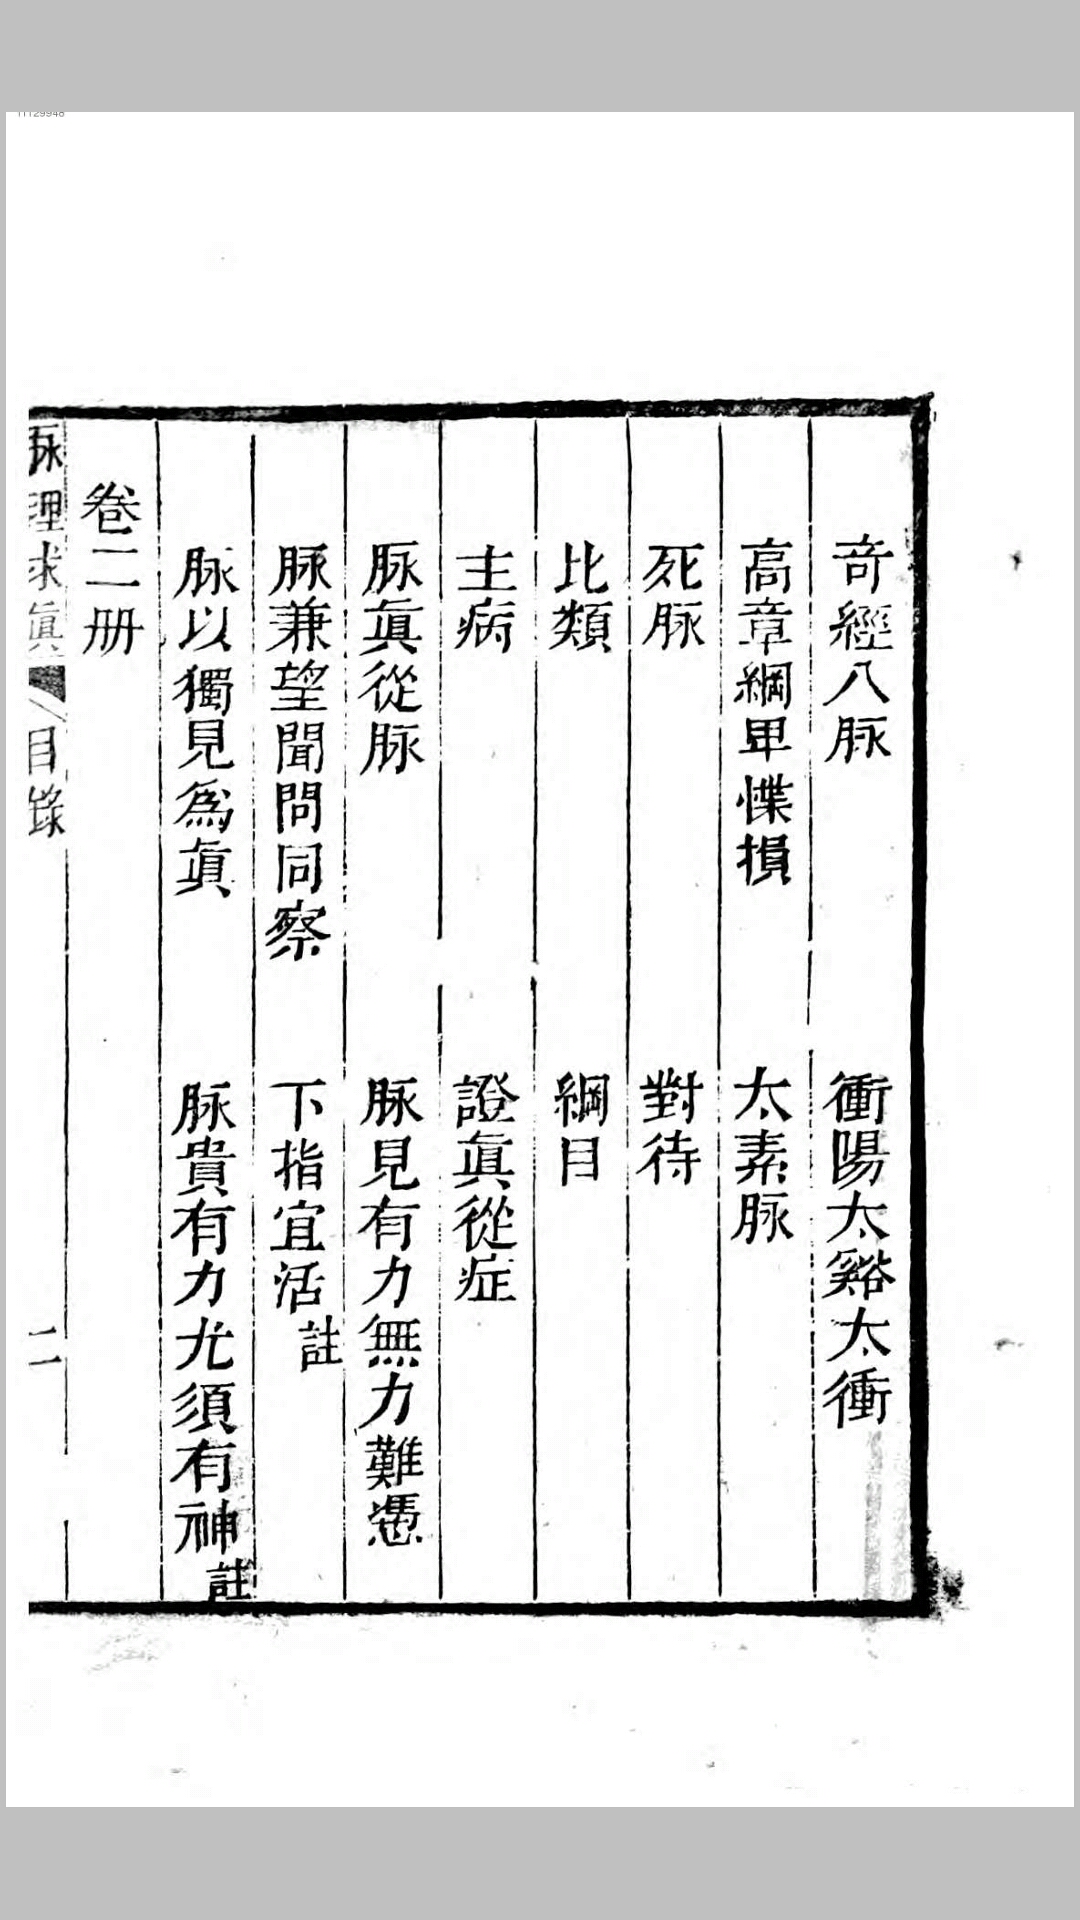 奇經八脉　衝陽太谿太衝
高章綱卑惵損　太素脉
死脉　對待
比類　綱目
主病　證眞從症
脉眞從脉　脉見有力無力難憑
脉兼望聞問同察　下指宜活註
脉以獨見爲眞　脉貴有力尤須有神註
卷二册
脉理求眞　目錄　二